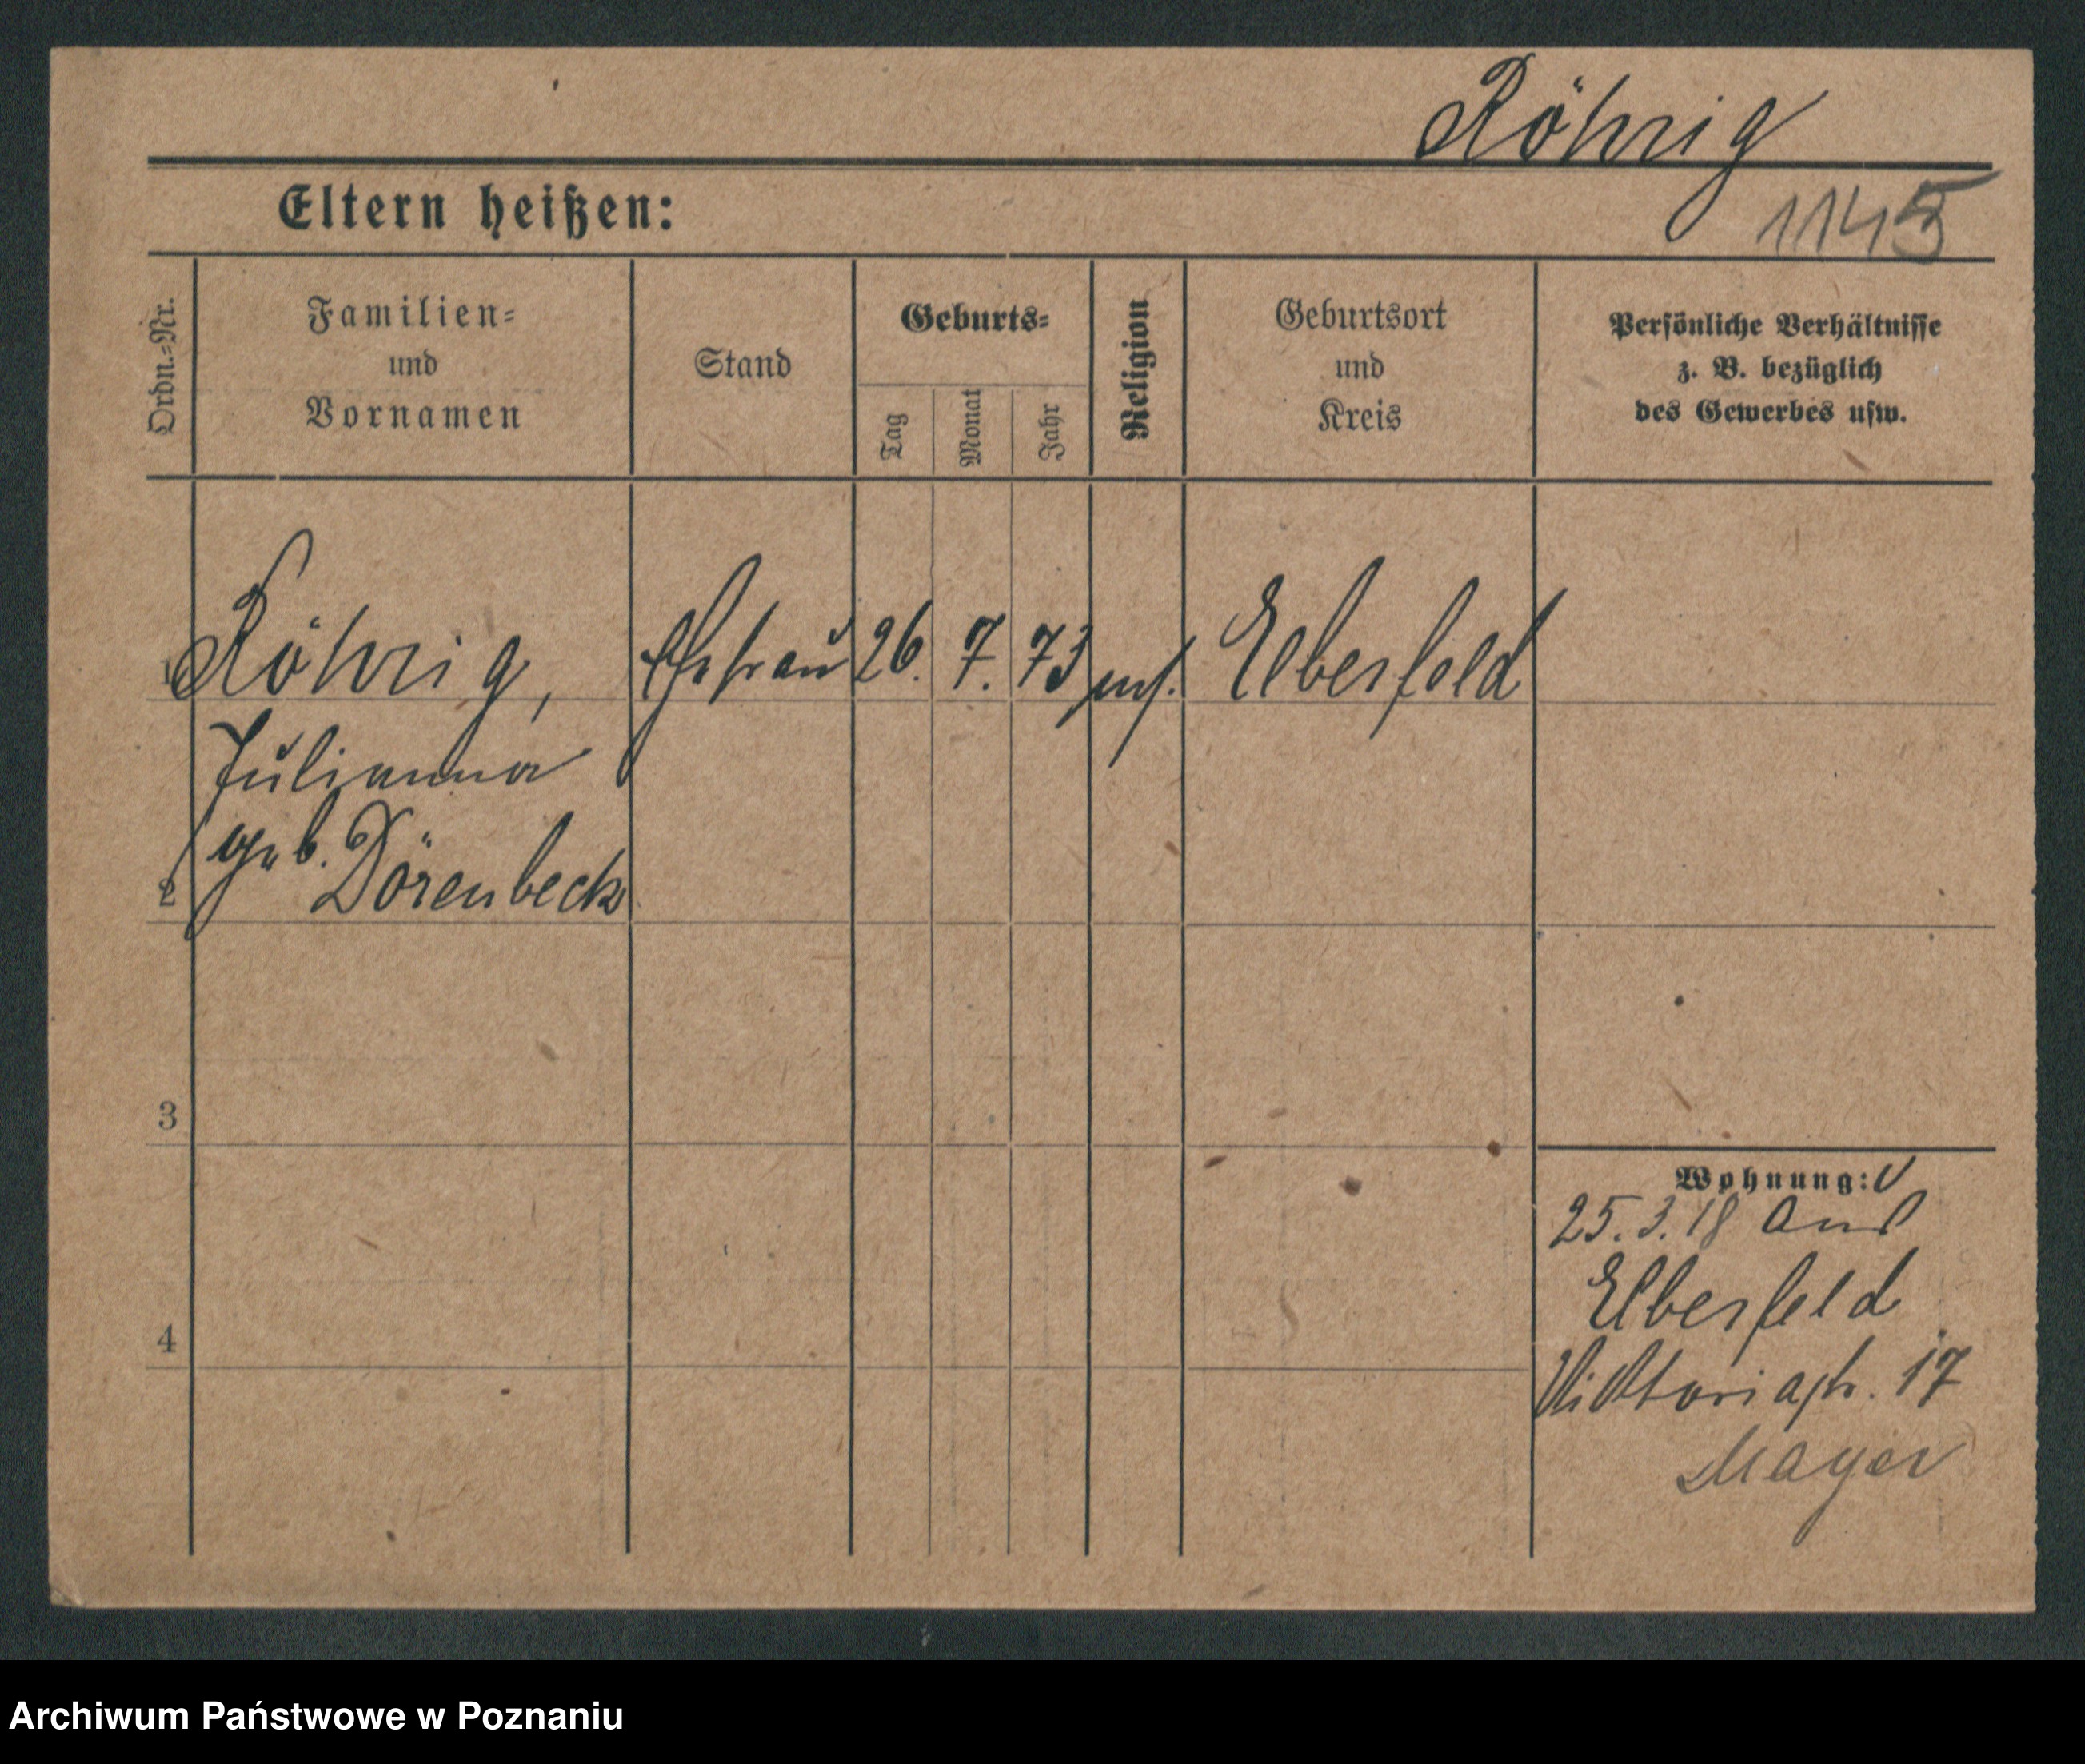 Röhrig
Eltern heißen:
1145
Ordn.-Nr.
Familien-
und
Vornamen
Stand
Geburts-
Tag
Monat
Jahr
Religion
Geburtsort
und
Kreis
Persönliche Verhältnisse
z. B. bezüglich
des Gewerbes usw.
1 Röhrig, Ehefrau 26. 7. 73 Elberfeld
Julianna
geb.
2 Dörenbeck
3
4
Wohnung:
25.3.18
Elberfeld
Viktoriastr. 17
Mayer
Archiwum Państwowe w Poznaniu